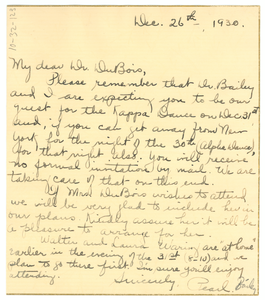 Dec. 26th, 1930.
My dear Dr. DuBois,
Please remember that Dr. Bailey
and I are expecting you to be our
guest for the Kappa Dance on Dec 31st
and, if you can get away from New
York for the night of the 30th (Alpha Dance),
for that night also. You will receive
no formal invitation by mail. We are
taking care of that on this end.
If Mrs. DuBois wishes to attend
we will be very glad to include her in
our plans. Kindly assure her it will be
a pleasure to arrange for her.
Walter and Laura Waring are at home
earlier in the evening of the 31st (8-10) and
plan to go there first. I'm sure you'll enjoy
attending.
Sincerely, Pearl Bailey